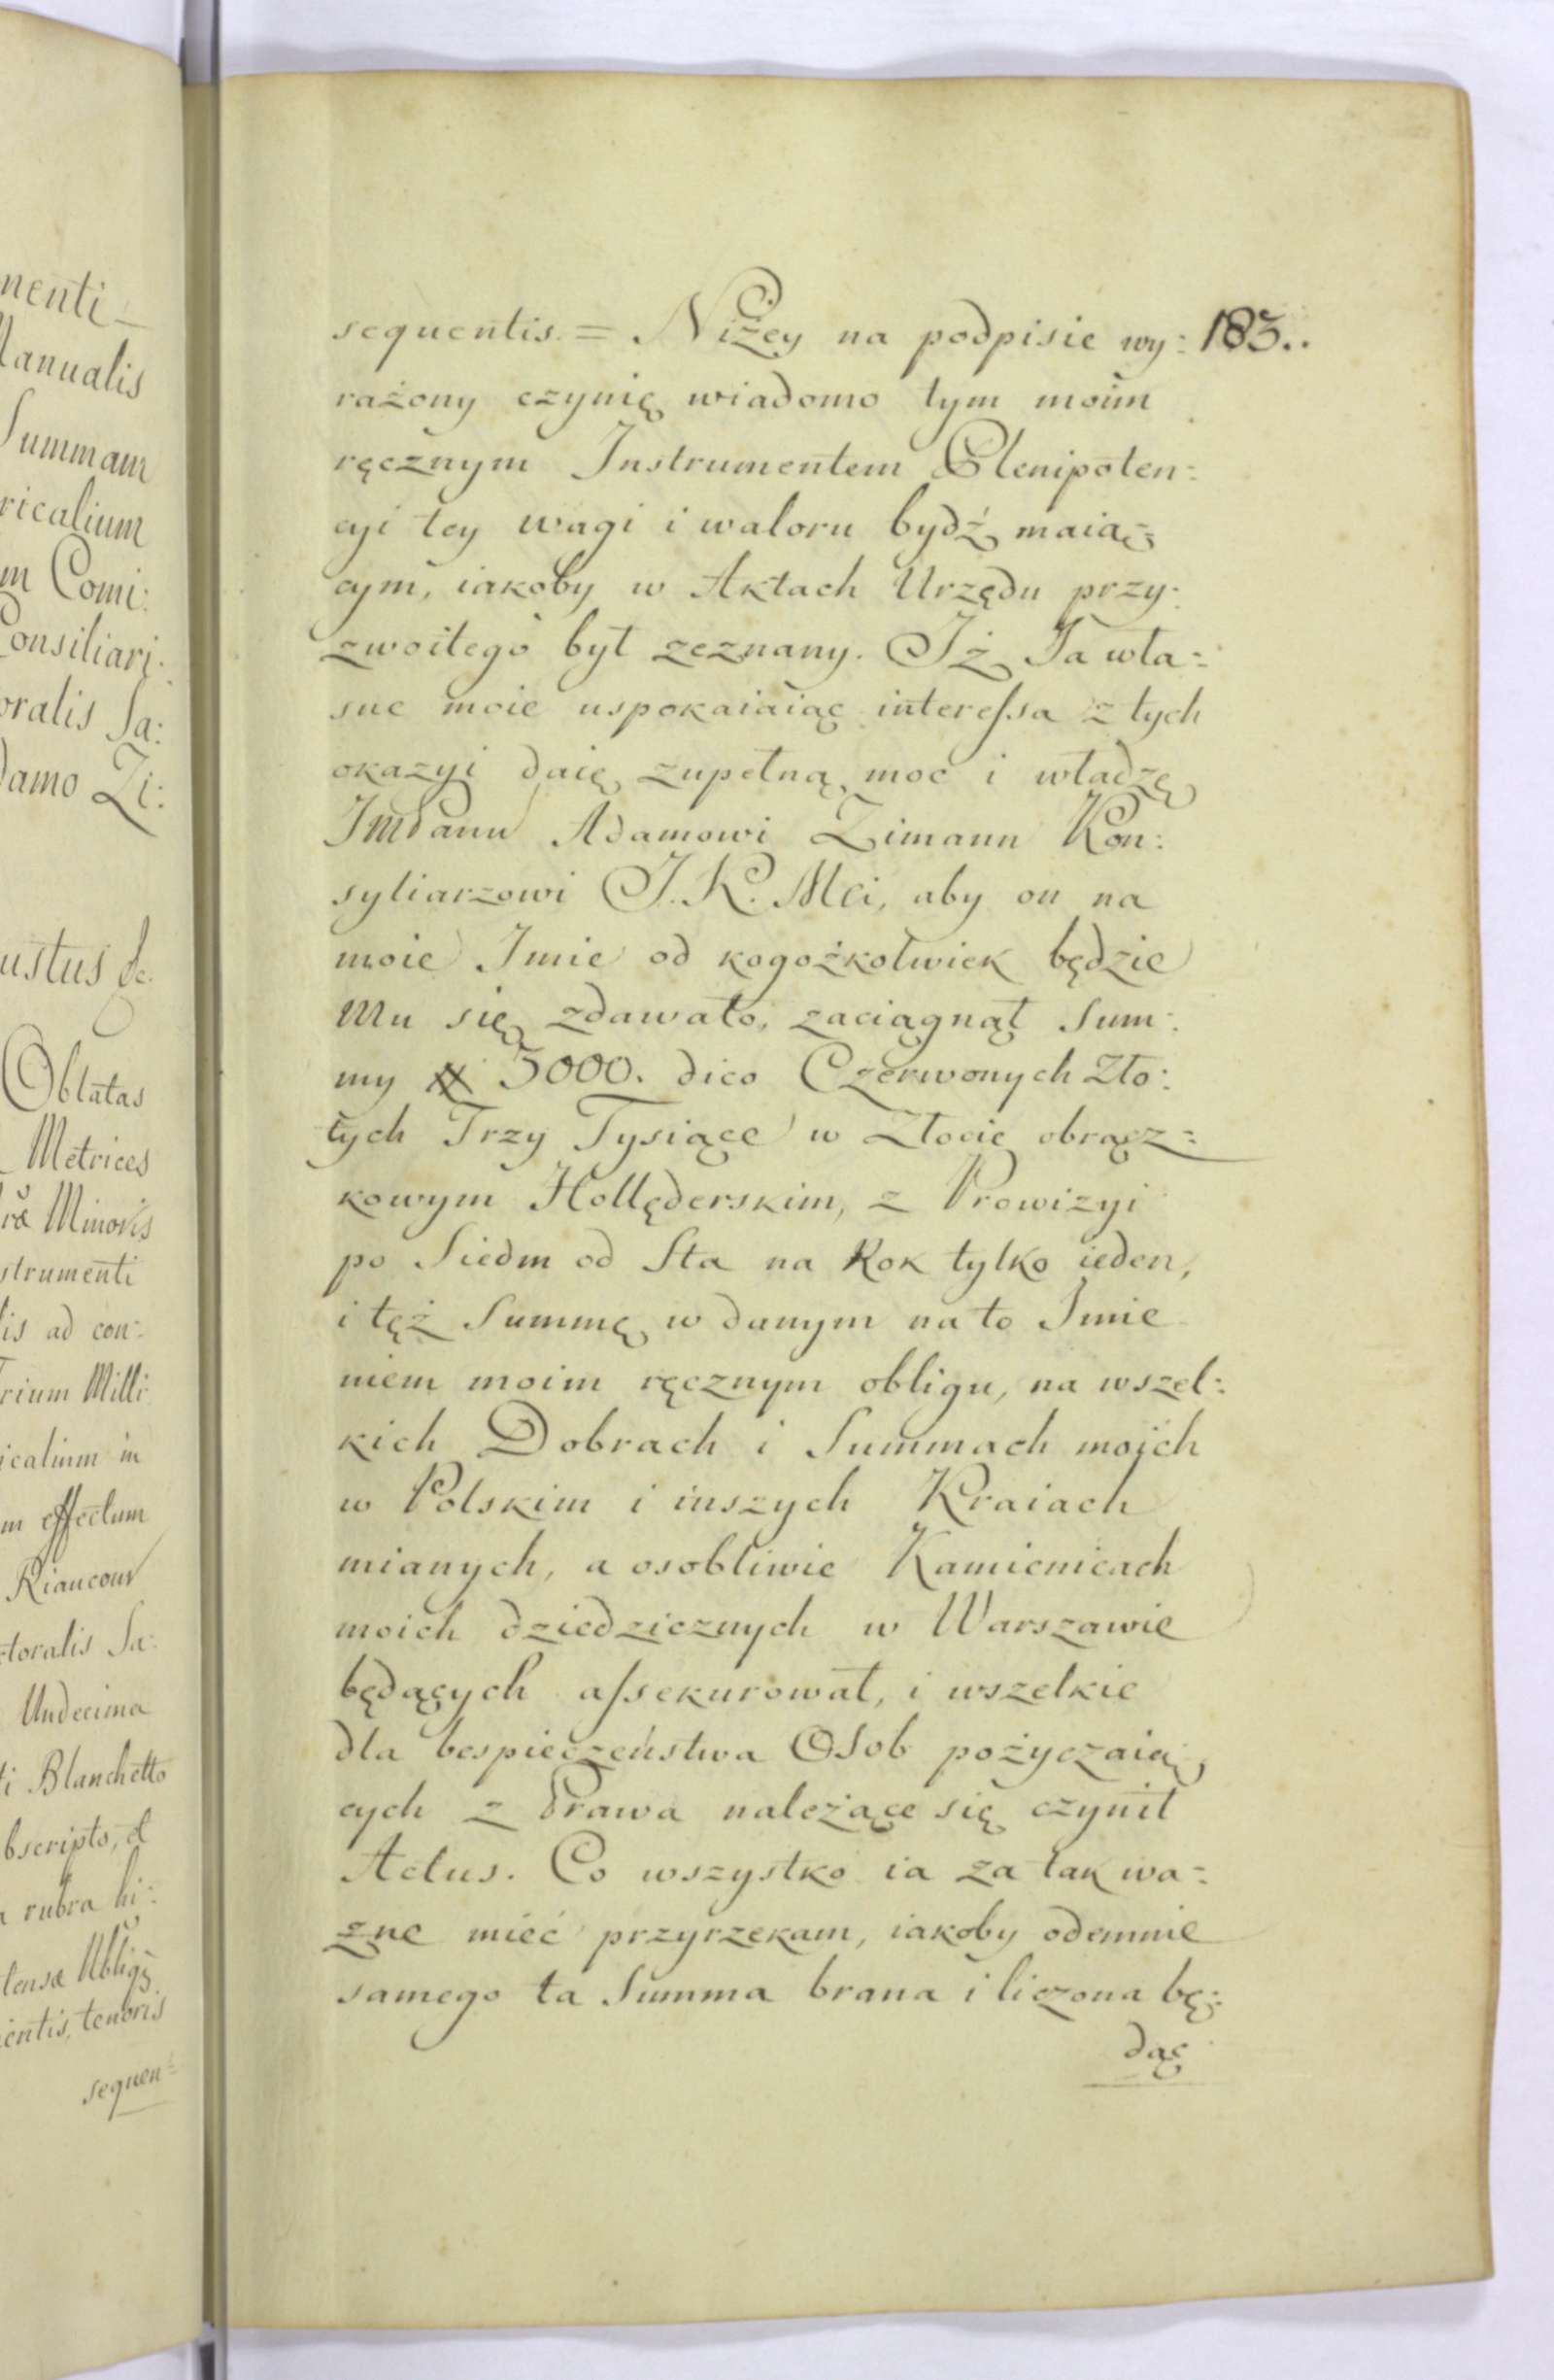 nenti
Manualis
Summam
ricalium
m Comi:
Consiliari:
oralis Sa:
damo Zi:
ustus
Oblatas
Metrices
Minoris
strumenti
lis ad con:
rium Milli
icalium in
m effectum
Riaucour
toralis Sa:
Undecima
ti Blanchetto
bscripto, et
a rubra hi:
entis, tenoris
sequen=
sequentis = Niżey na podpisie wy: 183..
rażony czynię wiadomo tym moim
ręcznym Instrumentem Plenipoten:
cyi tey wagi i waloru bydź maią=
cym, iakoby w Aktach Urzędu przy:
zwoitego był zeznany. Iż Ja wła=
sne moie uspokaiaiąc interessa z tych
okazyi daię zupełną moc i władzę
ImPanu Adamowi Zimann Kon:
syliarzowi J. K. Mci, aby on na
moie Imie od kogożkolwiek będzie
Mu się zdawało, zaciągnął Sum:
my # 3000. dico Czerwonych Zło:
tych Trzy Tysiące w Złocie obrącz=
kowym Hollęderskim, z Prowizyi
po Siedm od Sta na Rok tylko ieden,
i tęż Summę w danym na to Imie
niem moim ręcznym obligu, na wszel:
kich Dobrach i Summach moich
w Polskim i inszych Kraiach
mianych, a osobliwie Kamienicach
moich dziedzicznych w Warszawie
będących assekurował, i wszelkie
dla bespieczeństwa Osob pożyczaią,
cych z Prawa należące się czynił
Actus. Co wszystko ia za tak wa=
żne mieć przyrzekam, iakoby odemnie
samego ta Summa brana i liczona bę:
dąc